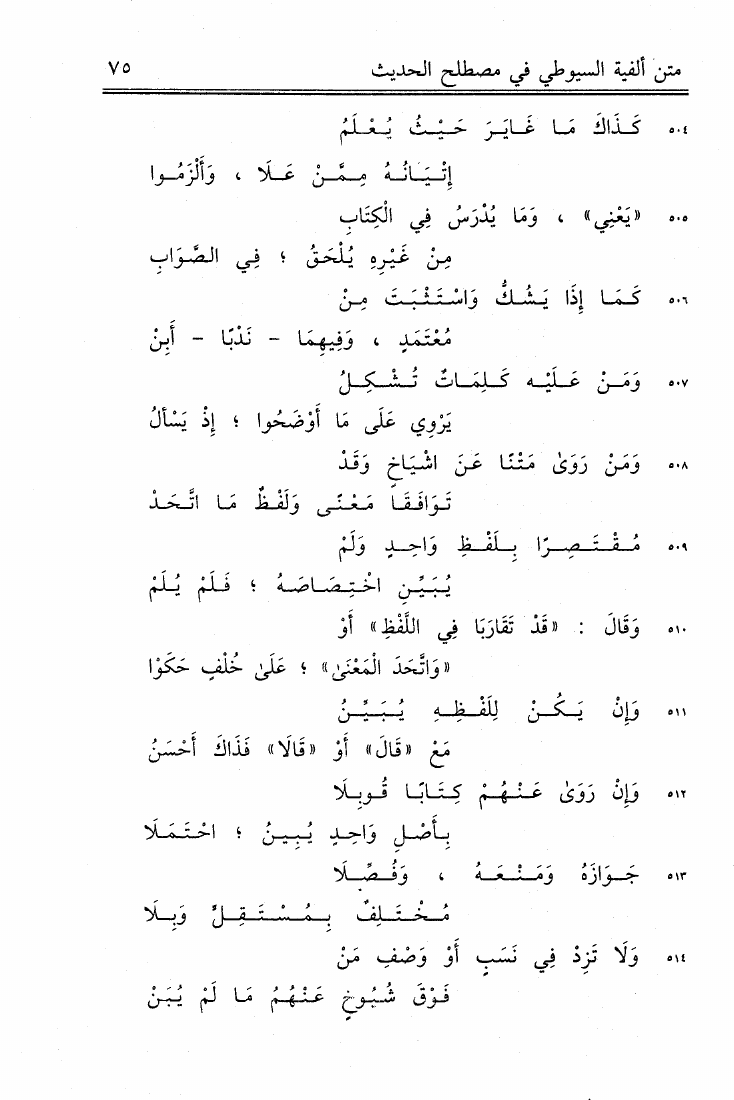 متن ألفية السيوطي في مصطلح الحديث ٧٥
٥٠٤ كَذَاكَ مَا غَايَرَ حَيْثُ يُعْلَمُ
إِتْيَانُهُ مِمَّنْ عَلَا ، وَأَلْزَمُوا
٥٠٥ «يَعْنِي» ، وَمَا يُدْرَسُ فِي الْكِتَابِ
مِنْ غَيْرِهِ يُلْحَقُ ؛ فِي الصَّوَابِ
٥٠٦ كَمَا إِذَا يَشُكُّ وَاسْتَثْبَتَ مِنْ
مُعْتَمَدٍ ، وَفِيهِمَا - نَدْبًا - أَبِنْ
٥٠٧ وَمَنْ عَلَيْهِ كَلِمَاتٌ تُشْكِلُ
يَرْوِي عَلَى مَا أَوْضَحُوا ؛ إِذْ يَسْأَلُ
٥٠٨ وَمَنْ رَوَىٰ مَتْنًا عَنَ اشْيَاخٍ وَقَدْ
تَوَافَقَا مَعْنًى وَلَفْظٌ مَا اتَّحَدْ
٥٠٩ مُقْتَصِرًا بِلَفْظِ وَاحِدٍ وَلَمْ
يُبَيِّنِ اخْتِصَاصَهُ ؛ فَلَمْ يُلَمْ
٥١٠ وَقَالَ : «قَدْ تَقَارَبَا فِي اللَّفْظِ» أَوْ
«وَاتَّحَدَ الْمَعْنَىٰ» ؛ عَلَىٰ خُلْفٍ حَكَوْا
٥١١ وَإِنْ يَكُنْ لِلَفْظِهِ يُبَيِّنُ
مَعْ «قَالَ» أَوْ «قَالَا» فَذَاكَ أَحْسَنُ
٥١٢ وَإِنْ رَوَىٰ عَنْهُمْ كِتَابًا قُوبِلَا
بِأَصْلِ وَاحِدٍ يُبِينُ ؛ احْتَمَلَا
٥١٣ جَوَازَهُ وَمَنْعَهُ ، وَفُصِّلَا
مُخْتَلِفٌ بِمُسْتَقِلٍّ وَبِلَا
٥١٤ وَلَا تَزِدْ فِي نَسَبٍ أَوْ وَصْفِ مَنْ
فَوْقَ شُيُوخٍ عَنْهُمُ مَا لَمْ يُبَنْ